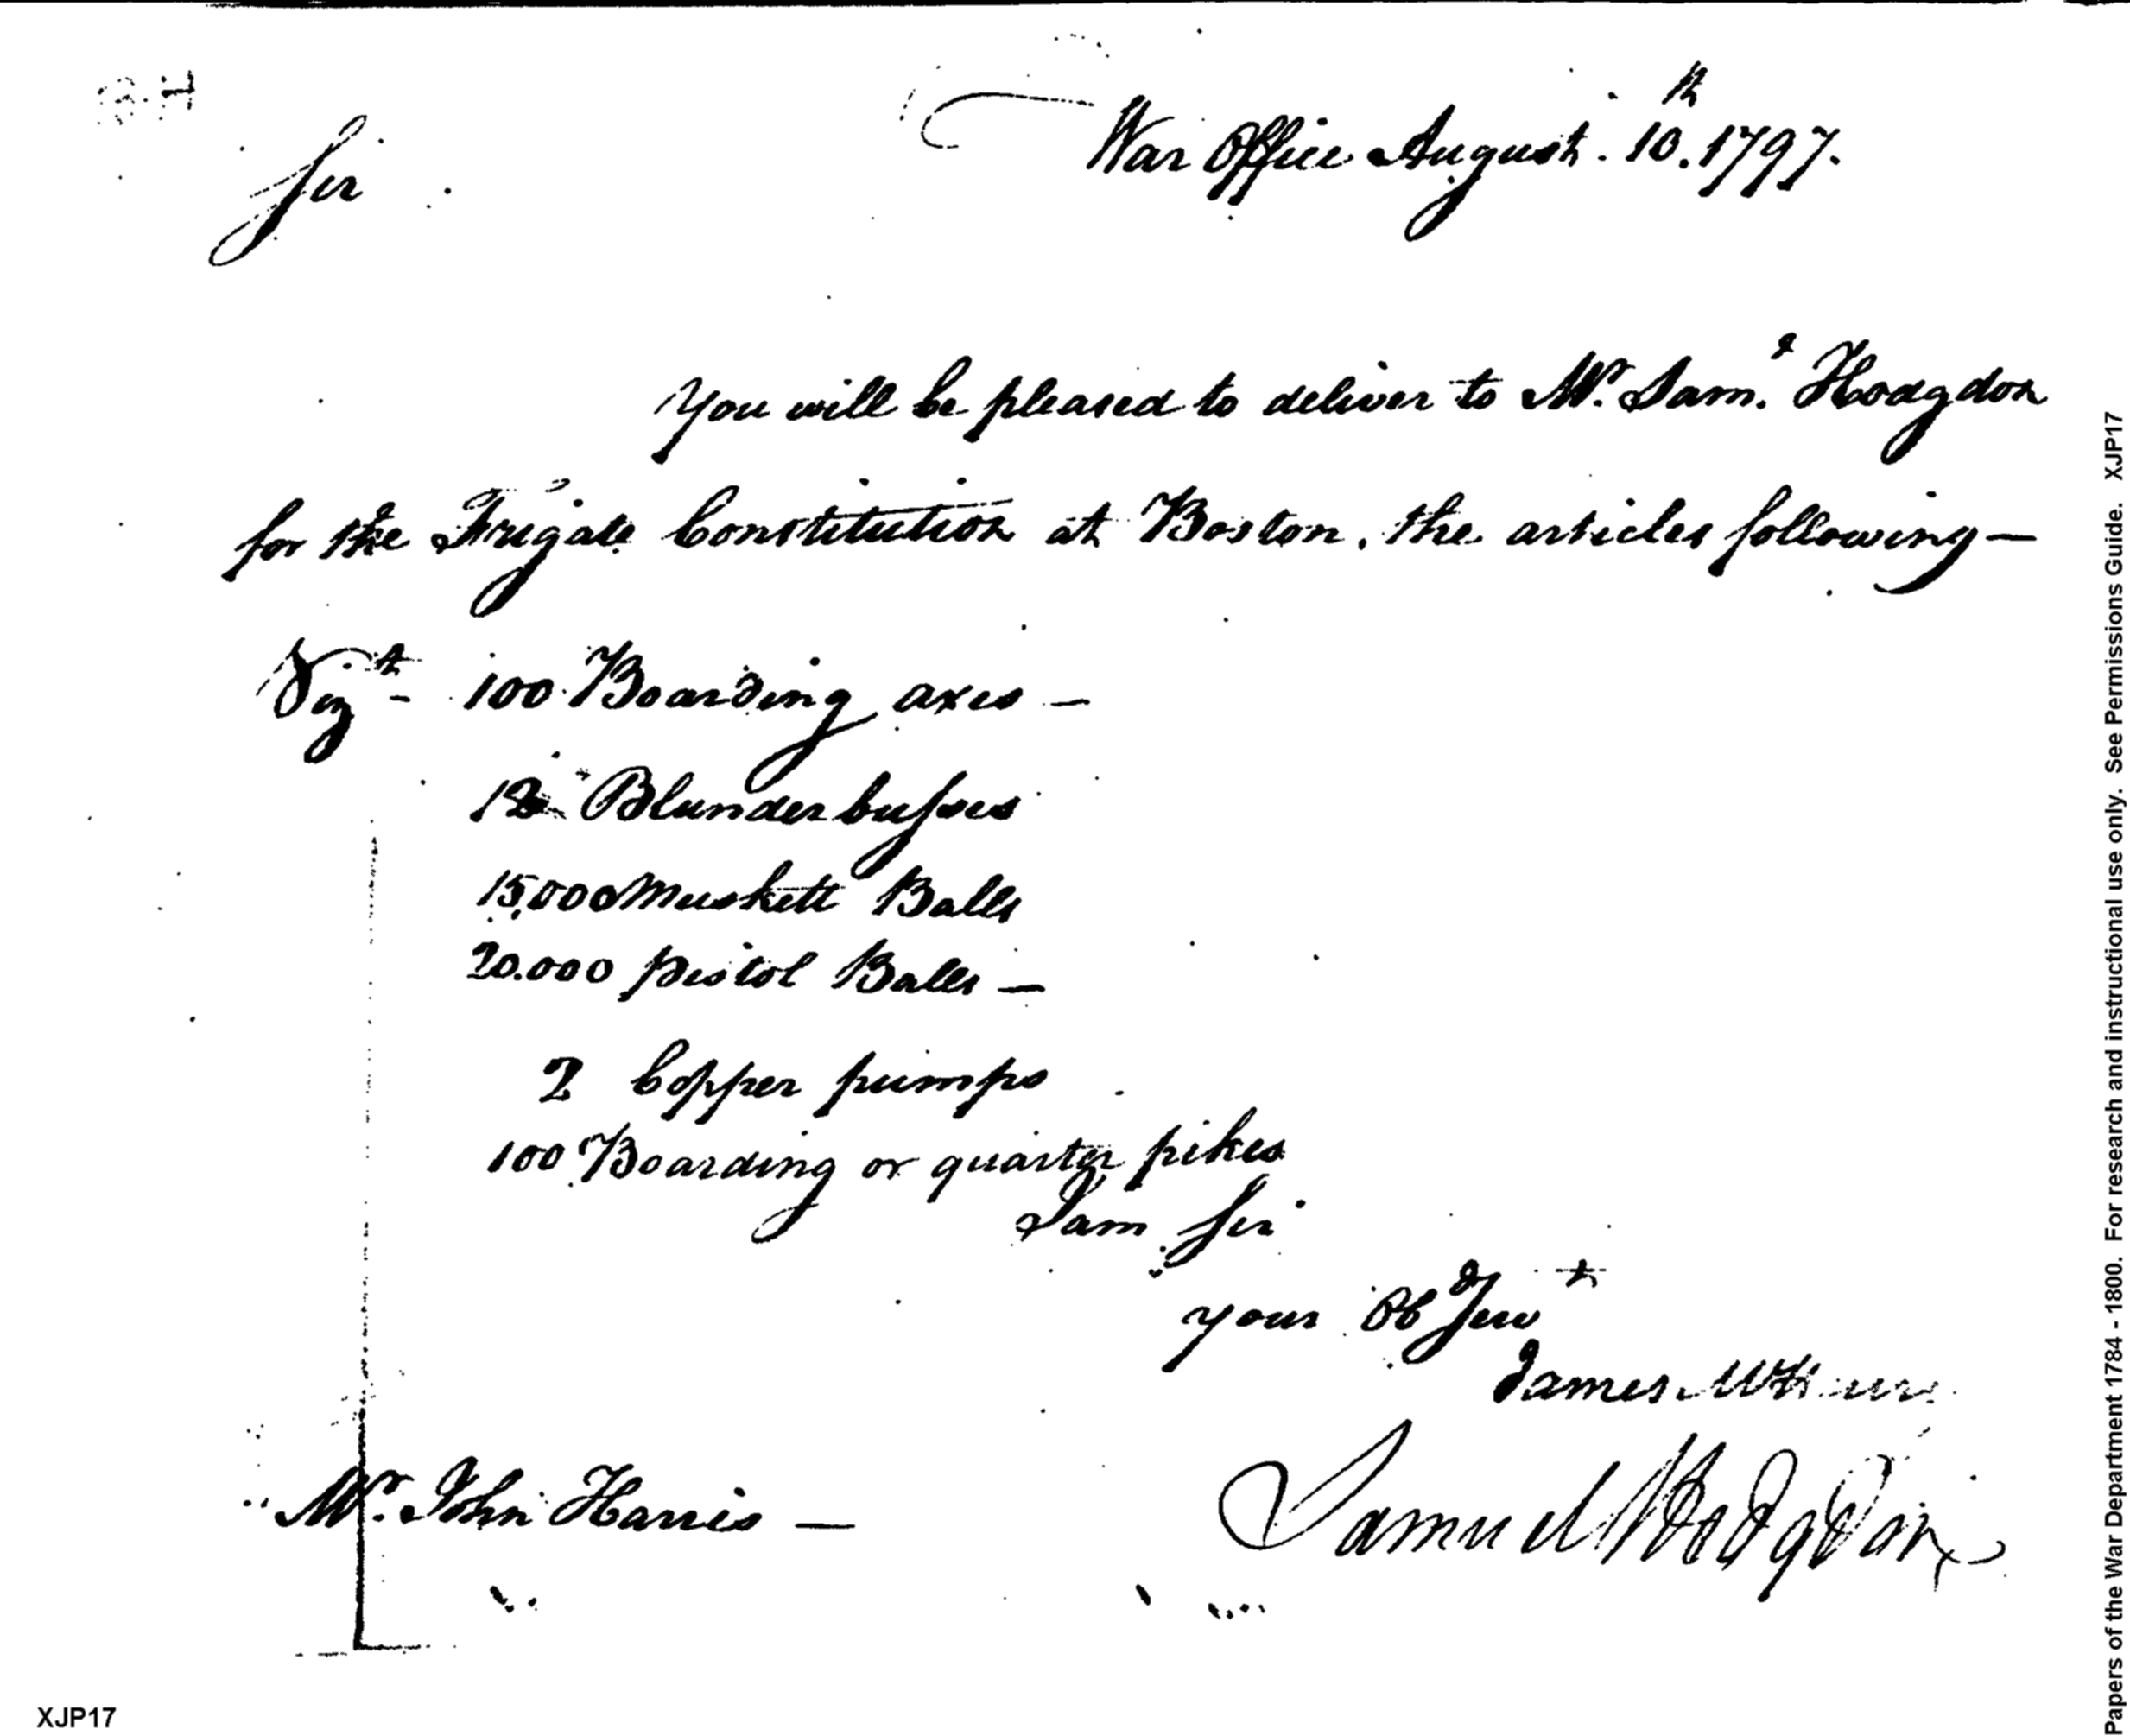 War Office August. 10th. 1797.
Sir
You will be pleased to deliver to Mr. Saml. Hodgdon
for the Frigate Constitution at Boston, the articles following —
Vizt - 100 Boarding axes —
12 Blunderbusses
15,000 Muskett Balls
20.000 pistol Balls —
2 Copper pumps
100 Boarding or quarter pikes
I am Sir
your Ob Servt
James McHenry
Mr. John Harris —
Samuel Hodgdon
XJP17
Papers of the War Department 1784 - 1800. For research and instructional use only. See Permissions Guide. XJP17